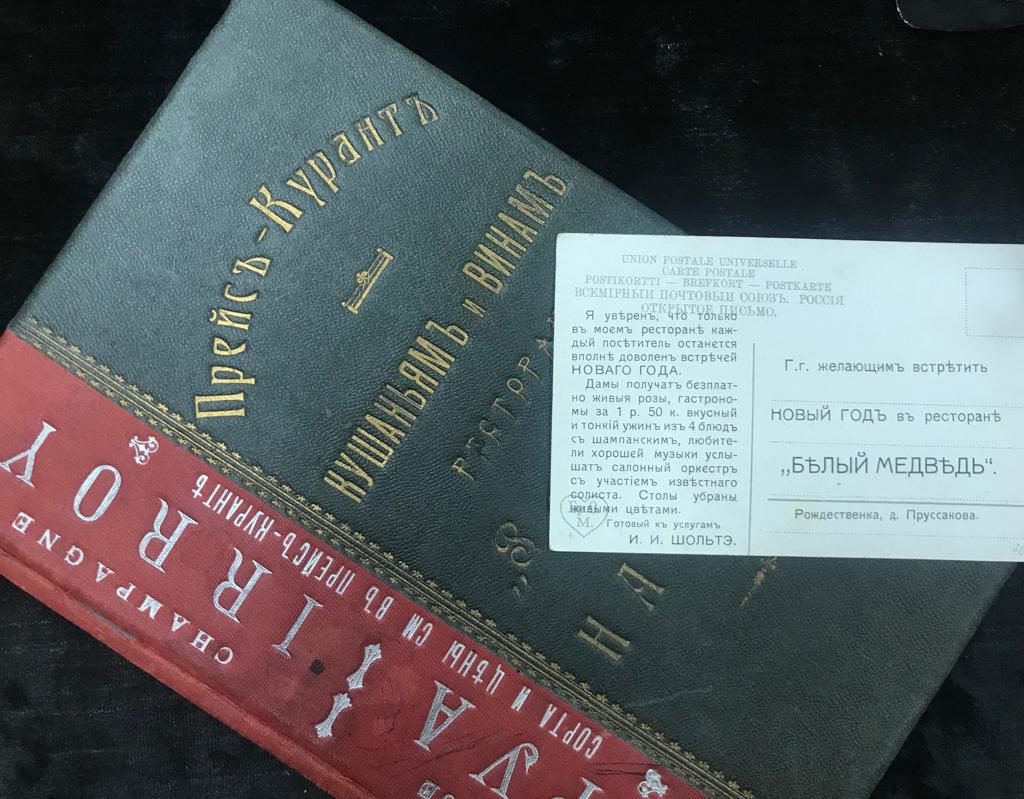 Прейсъ-Курантъ
КУШАНЬЯМЪ и ВИНАМЪ
НА
CHAMPAGNE
IRROY
СОРТА И ЦѢНЫ СМ. ВЪ ПРЕЙСЪ-КУРАНТѢ
UNION POSTALE UNIVERSELLE
CARTE POSTALE
POSTIKORTTI — BREFKORT — POSTKARTE
ВСЕМІРНЫЙ ПОЧТОВЫЙ СОЮЗЪ. РОССІЯ
ОТКРЫТОЕ ПИСЬМО.
Я увѣренъ, что только
въ моемъ ресторанѣ каж-
дый посѣтитель останется
вполнѣ доволенъ встрѣчей
НОВАГО ГОДА.
Дамы получатъ безплат-
но живыя розы, гастроно-
мы за 1 р. 50 к. вкусный
и тонкій ужин изъ 4 блюдъ
съ шампанскимъ, любите-
ли хорошей музыки услы-
шатъ салонный оркестръ
съ участіемъ извѣстнаго
солиста. Столы убраны
живыми цвѣтами.
Готовый къ услугамъ
И. И. ШОЛЬТЭ.
Г.г. желающимъ встрѣтить
НОВЫЙ ГОДЪ въ ресторанѣ
„БѢЛЫЙ МЕДВѢДЬ“.
Рождественка, д. Пруссакова.